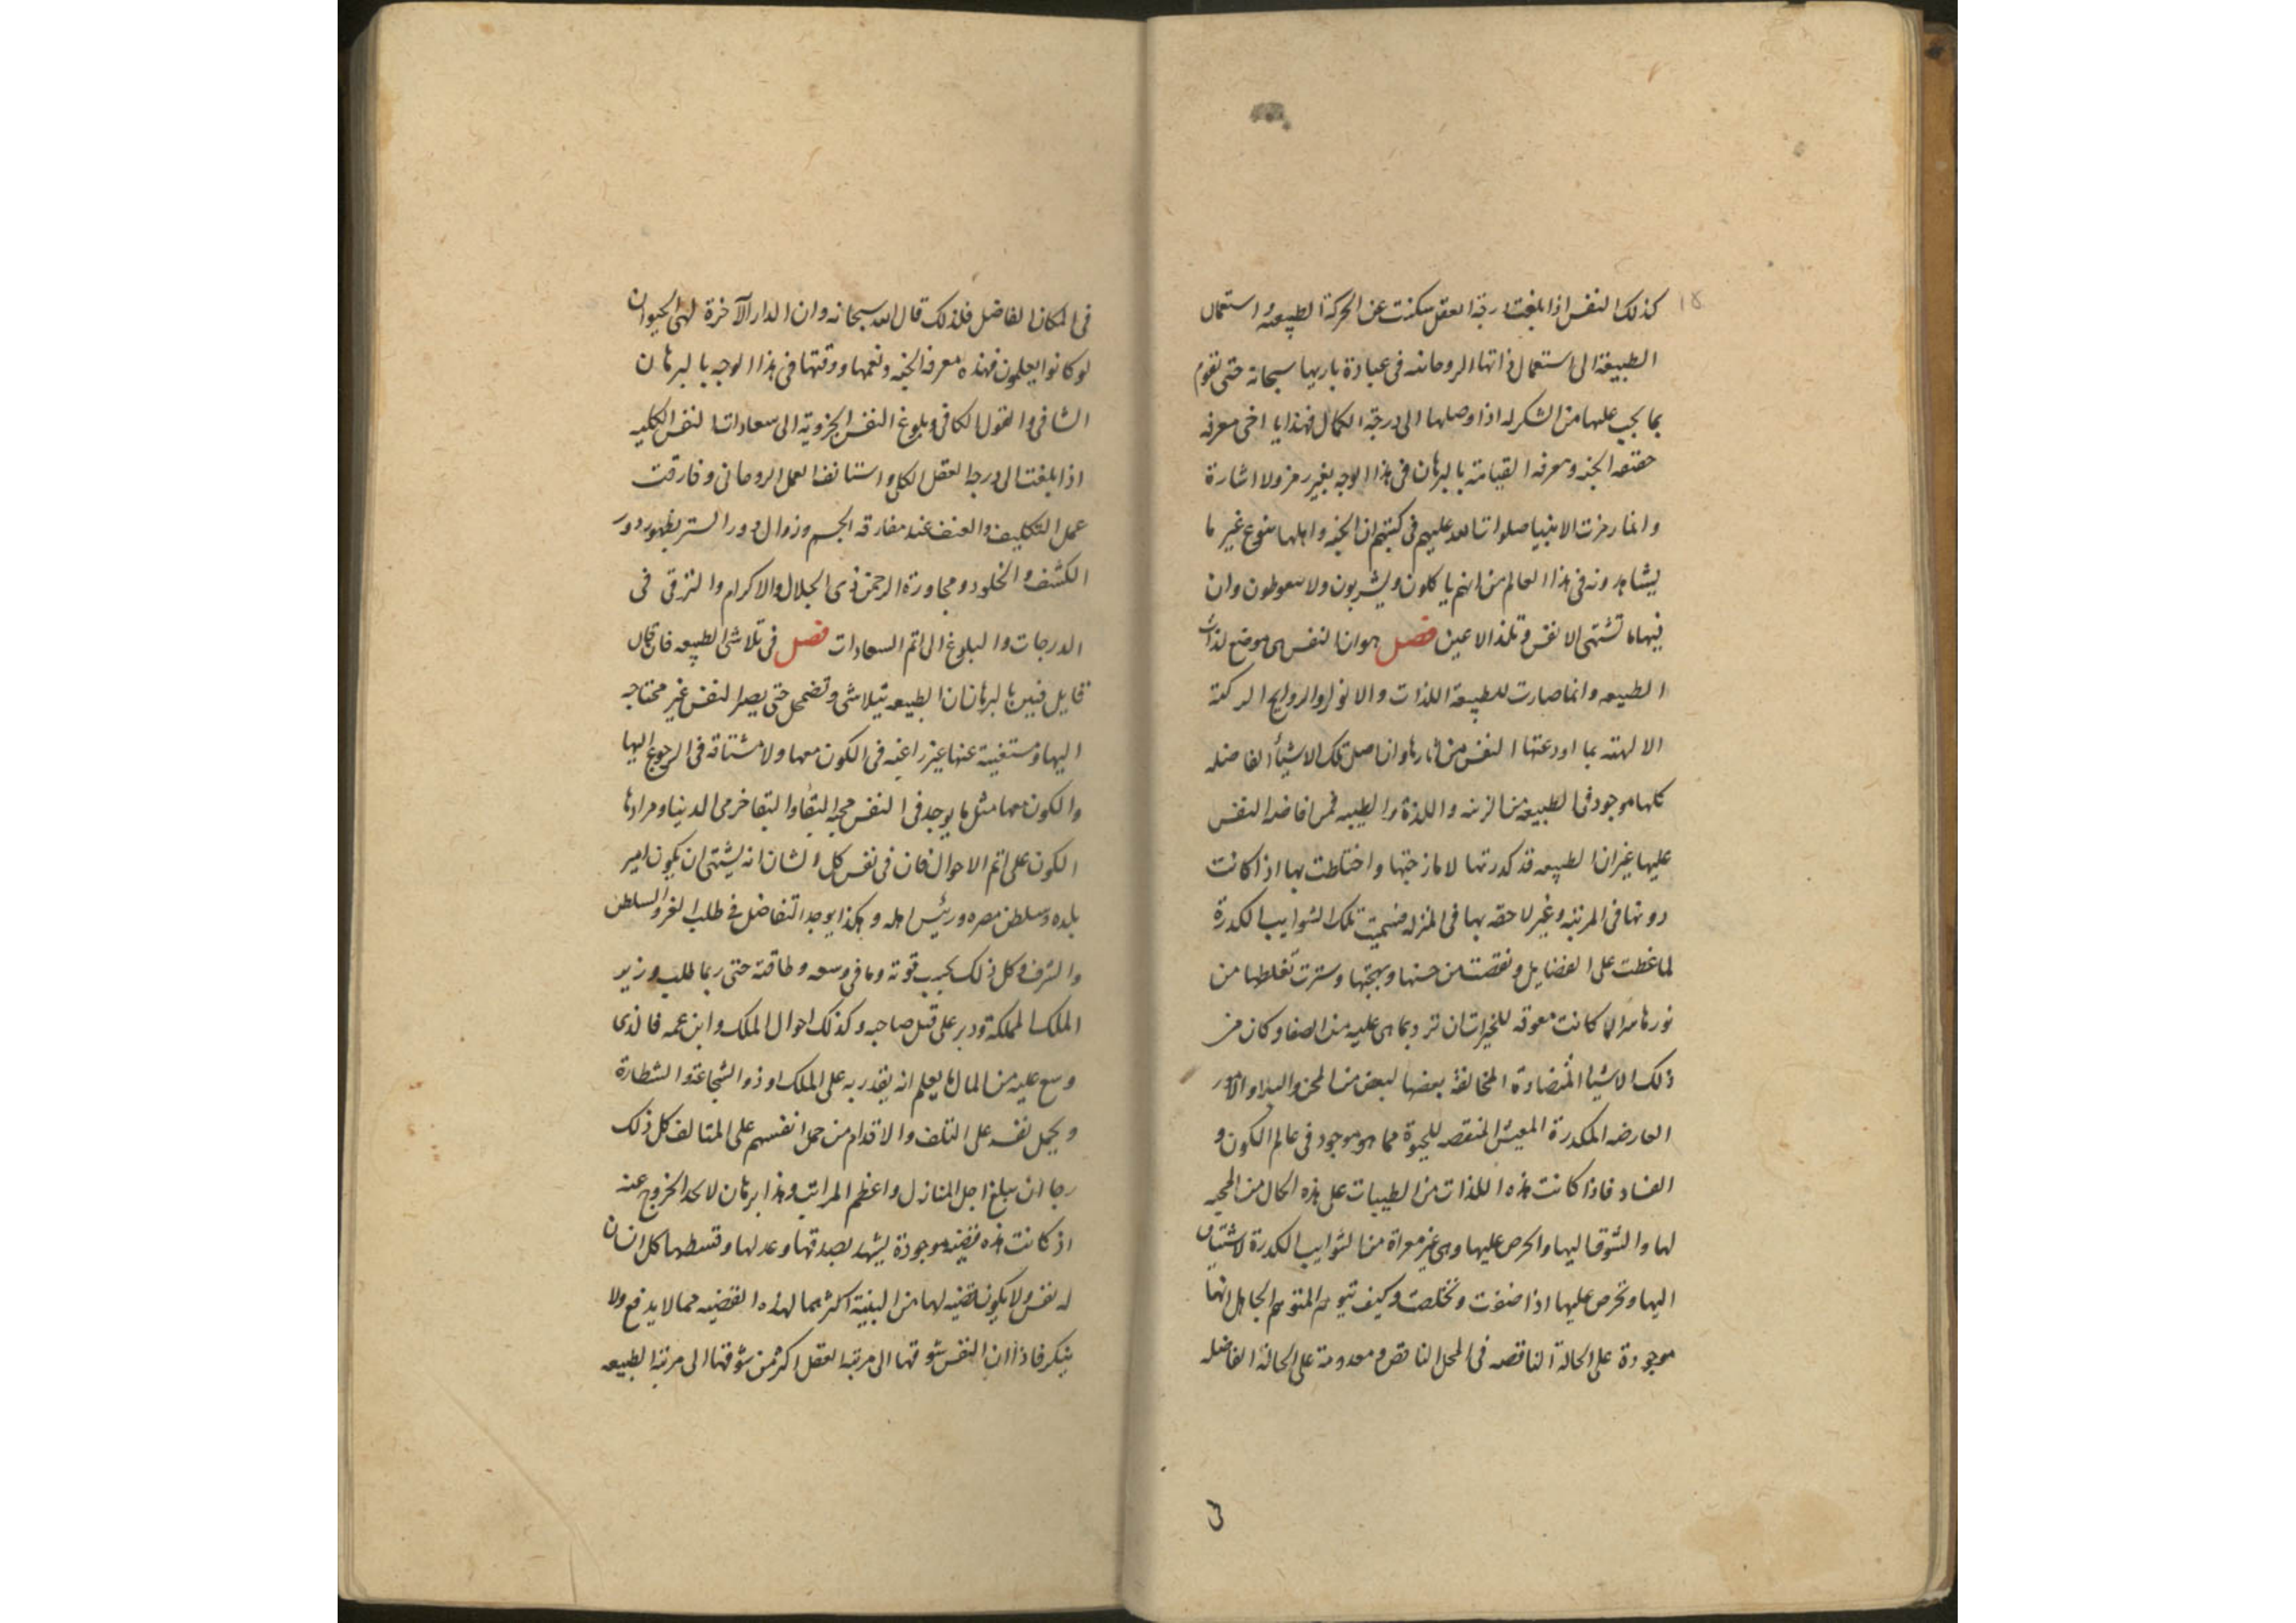 ١٨
كذلك النفس اذا بلغت درجة العقل سكنت عن الحركة الطبيعه و استعمال
الطبيعة الى استعمال ذاتها الروحانيه فى عبادة باريها سبحانه حتى تقوم
بما يجب عليها من الشكر له اذا وصلها الى درجة الكمال فهذا يا اخى معرفه
حقيقه الجنه ومعرفه القيامة بالبرهان فى هذا الوجه بغير رمز ولا اشارة
وانما رمزت الانبيا صلوات الله عليهم فى كتبهم ان الجنه واهلها بنوع غير ما
يشاهدونه فى هذا العالم من انهم ياكلون ويشربون ولا يغوطون وان
فيها ما تشتهى الانفس وتلذ الاعين فصل هو ان النفس هى موضع لذات
الطبيعه وانما صارت للطبيعة اللذات والانوار والروايح الزكية
الالهية بما اودعتها النفس من اثارها وان اصل تلك الاشيأ الفاضله
كلها موجود فى الطبيعة من الزينه واللذة والطيبه فمن افاضه النفس
عليها غير ان الطبيعه قد كدرتها لما زجتها واختلطت بها اذا كانت
دونها فى المرتبه وغير لاحقه بها فى المنزله فسميت تلك الشوايب الكدرة
لما غطت على الفضايل ونقصت من حسنها وبهجتها وسترت بغلظها من
نورها ما كانت معوقه للخيرات ان ترد بما هى عليه من الصفا وكان من
ذلك الاشيا المتضادة المخالفة بعضها لبعض من المحن والبلاو الامور
العارضه المكدرة المعيشه المنغصه للحيوة مما هو موجود فى عالم الكون و
الفساد فاذا كانت هذه اللذات من الطيبات على هذه الحال من المحبه
لها والشوق اليها والحرص عليها وهى غير معراة من الشوايب الكدرة لاشتياق
اليها وتحرص عليها اذا صفوت وتخلصت وكيف يتوهم المتوهم الجاهل انها
موجودة على الحالة الناقصه فى المحل الناقص ومعدومة على الحالة الفاضله
فى المكان الفاضل فلذلك قال الله سبحانه وان الدار الآخرة لهى الحيوان
لو كانوا يعلمون فهذه معرفه الجنه ونعيمها ووقتها فى هذا الوجه بالبرهان
الشافى والقول الكافى وبلوغ النفس الجزويه الى سعادات النفس الكليه
اذا بلغت الى درجه العقل الكلى واستانفت العمل الروحانى وفارقت
عمل التكليف والعنف عند مفارقه الجسم وزوال دور الستر بظهور دور
الكشف والخلود ومجاورة الرحمن ذى الجلال والاكرام والترقى فى
الدرجات والبلوغ الى اتم السعادات فصل فى تلاشى الطبيعه فان قال
قايل فبين بالبرهان ان الطبيعه تتلاشى وتضمحل حتى يصير النفس غير محتاجه
اليها ومستغنية عنها غير راغبه فى الكون معها ولا مشتاقه فى الرجوع اليها
والكون معها مثل ما يوجد فى النفس محبه البقا والتفاخر فى الدنيا ومرادها
الكون على اتم الاحوال فان فى نفس كل انسان انه يشتهى ان يكون امير
بلده وسلطن مصره ورئيس اهله وهكذا يوجد التفاضل فى طلب العز والسلطن
والشرف وكل ذلك بحسب قوته وما فى وسعه وطاقته حتى ربما طلب وزير
الملك المملكة ودبر على قتل صاحبه وكذلك احوال الملك وابن عمه فالذى
وسع عليه من المال ما يعلم انه يقدر به على الملك او ذو الشجاعة والشطارة
ويحمل نفسه على التلف والاقدام من حمل انفسهم على المتالف كل ذلك
رجا ان يبلغ اجل المنازل واعظم المراتب وهذا برهان لا يجد الخروج عنه
اذ كانت هذه قضيه موجودة يشهد بصدقها وعدلها وقسطها كل انسان
له نفس ولا يكون قضيه لها من البينة اكثر مما لهذه القضيه مما لا يدفع ولا
ينكر فاذا ان النفس شوقها الى مرتبه العقل اكثر من شوقها الى مرتبه الطبيعه